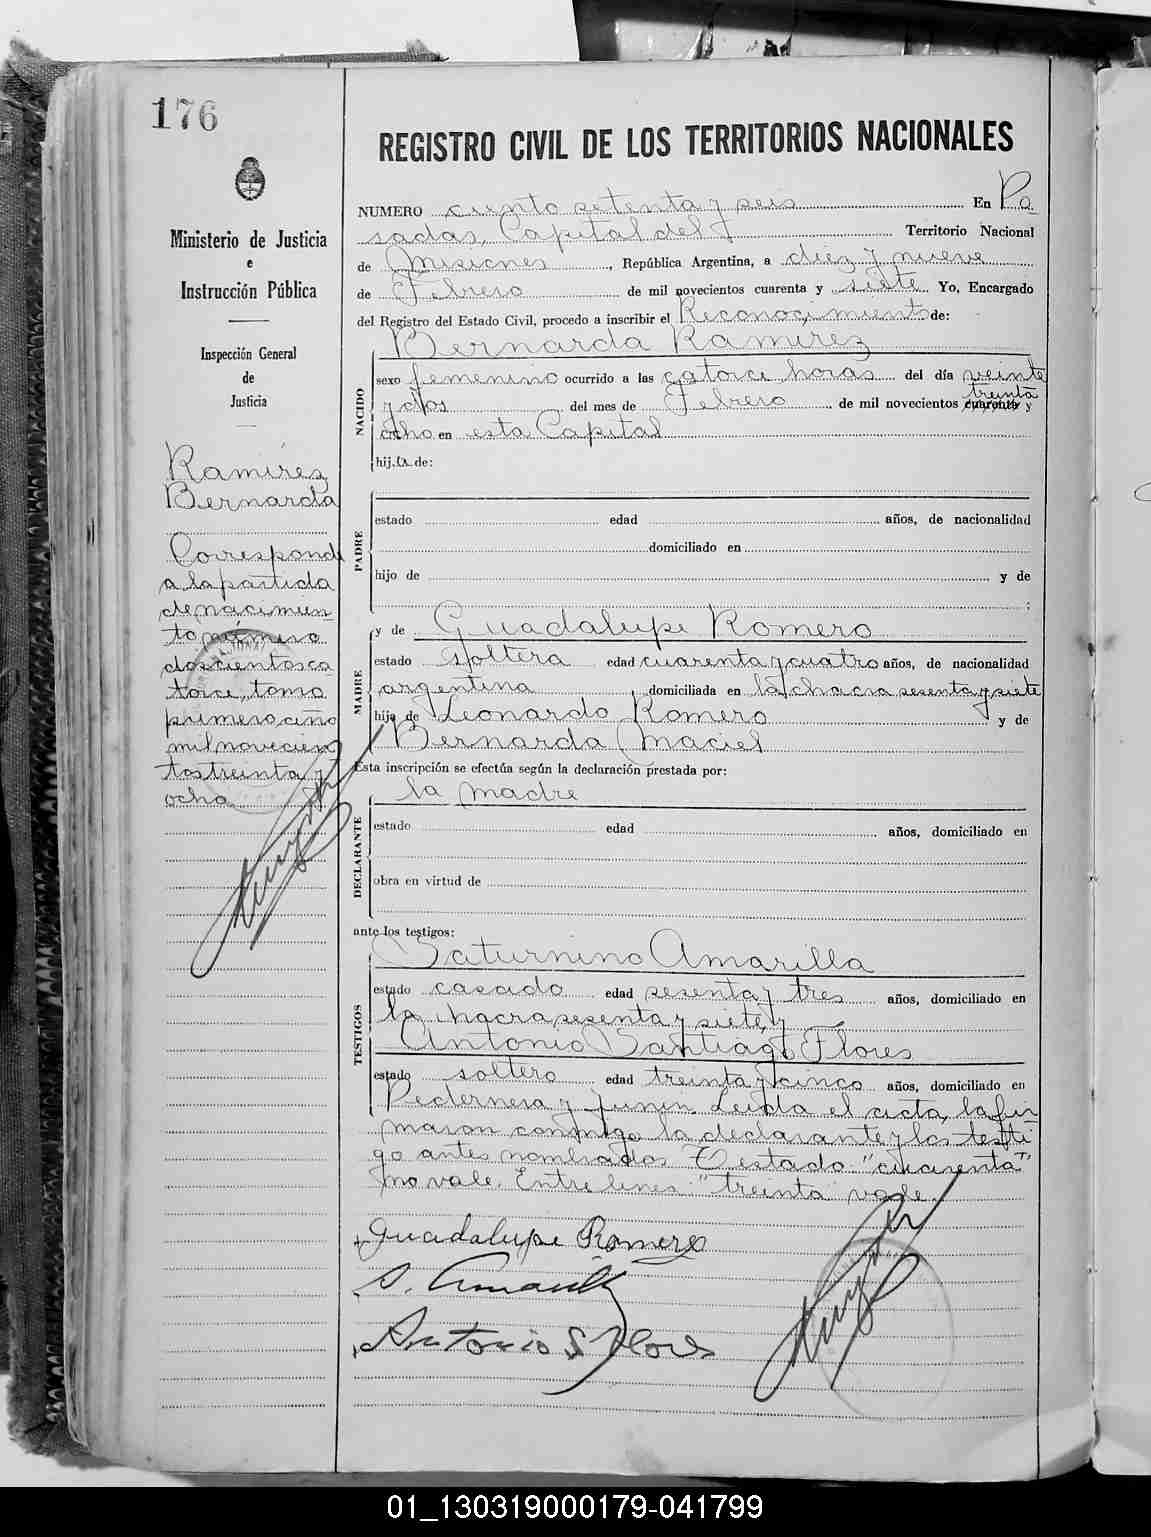 176
Ministerio de Justicia
e
Instrucción Pública
Inspección General
de
Justicia
Ramírez
Bernarda
Corresponde
a la partida
de nacimien-
to número
doscientos ca
torce, tomo
primero año
mil novecien
tos treinta y
ocho
REGISTRO CIVIL DE LOS TERRITORIOS NACIONALES
NUMERO ciento setenta y seis En Po
sadas, Capital del Territorio Nacional
de Misiones, República Argentina, a diez y nueve
de Febrero de mil novecientos cuarenta y siete Yo, Encargado
del Registro del Estado Civil, procedo a inscribir el Reconocimiento de:
Bernarda Ramirez
NACIDO
sexo femenino ocurrido a las catorce horas del día veinte
treinta
y dos del mes de Febrero de mil novecientos cuarenta y
ocho en esta Capital
hija de:
PADRE
estado edad años, de nacionalidad
domiciliado en
hijo de y de
;
MADRE
y de Guadalupe Romero
estado soltera edad cuarenta y cuatro años, de nacionalidad
argentina, domiciliada en la chacra sesenta y siete
hija de Leonardo Romero y de
Bernarda Maciel
Esta inscripción se efectúa según la declaración prestada por:
DECLARANTE
la madre
estado edad años, domiciliado en
obra en virtud de
ante los testigos:
TESTIGOS
Saturnino Amarilla
estado casado edad sesenta y tres años, domiciliado en
la chacra sesenta y siete y
Antonio Santiago Flores
estado soltero edad treinta y cinco años, domiciliado en
Pedernera y Junin. Leida el acta, la fir
maron conmigo la declarante y los testi
go antes nombrados. Testado "cuarenta"
no vale. Entre lineas "treinta" vale.
Guadalupe Romero
S. Amarilla
Antonio S Flores
01_130319000179-041799